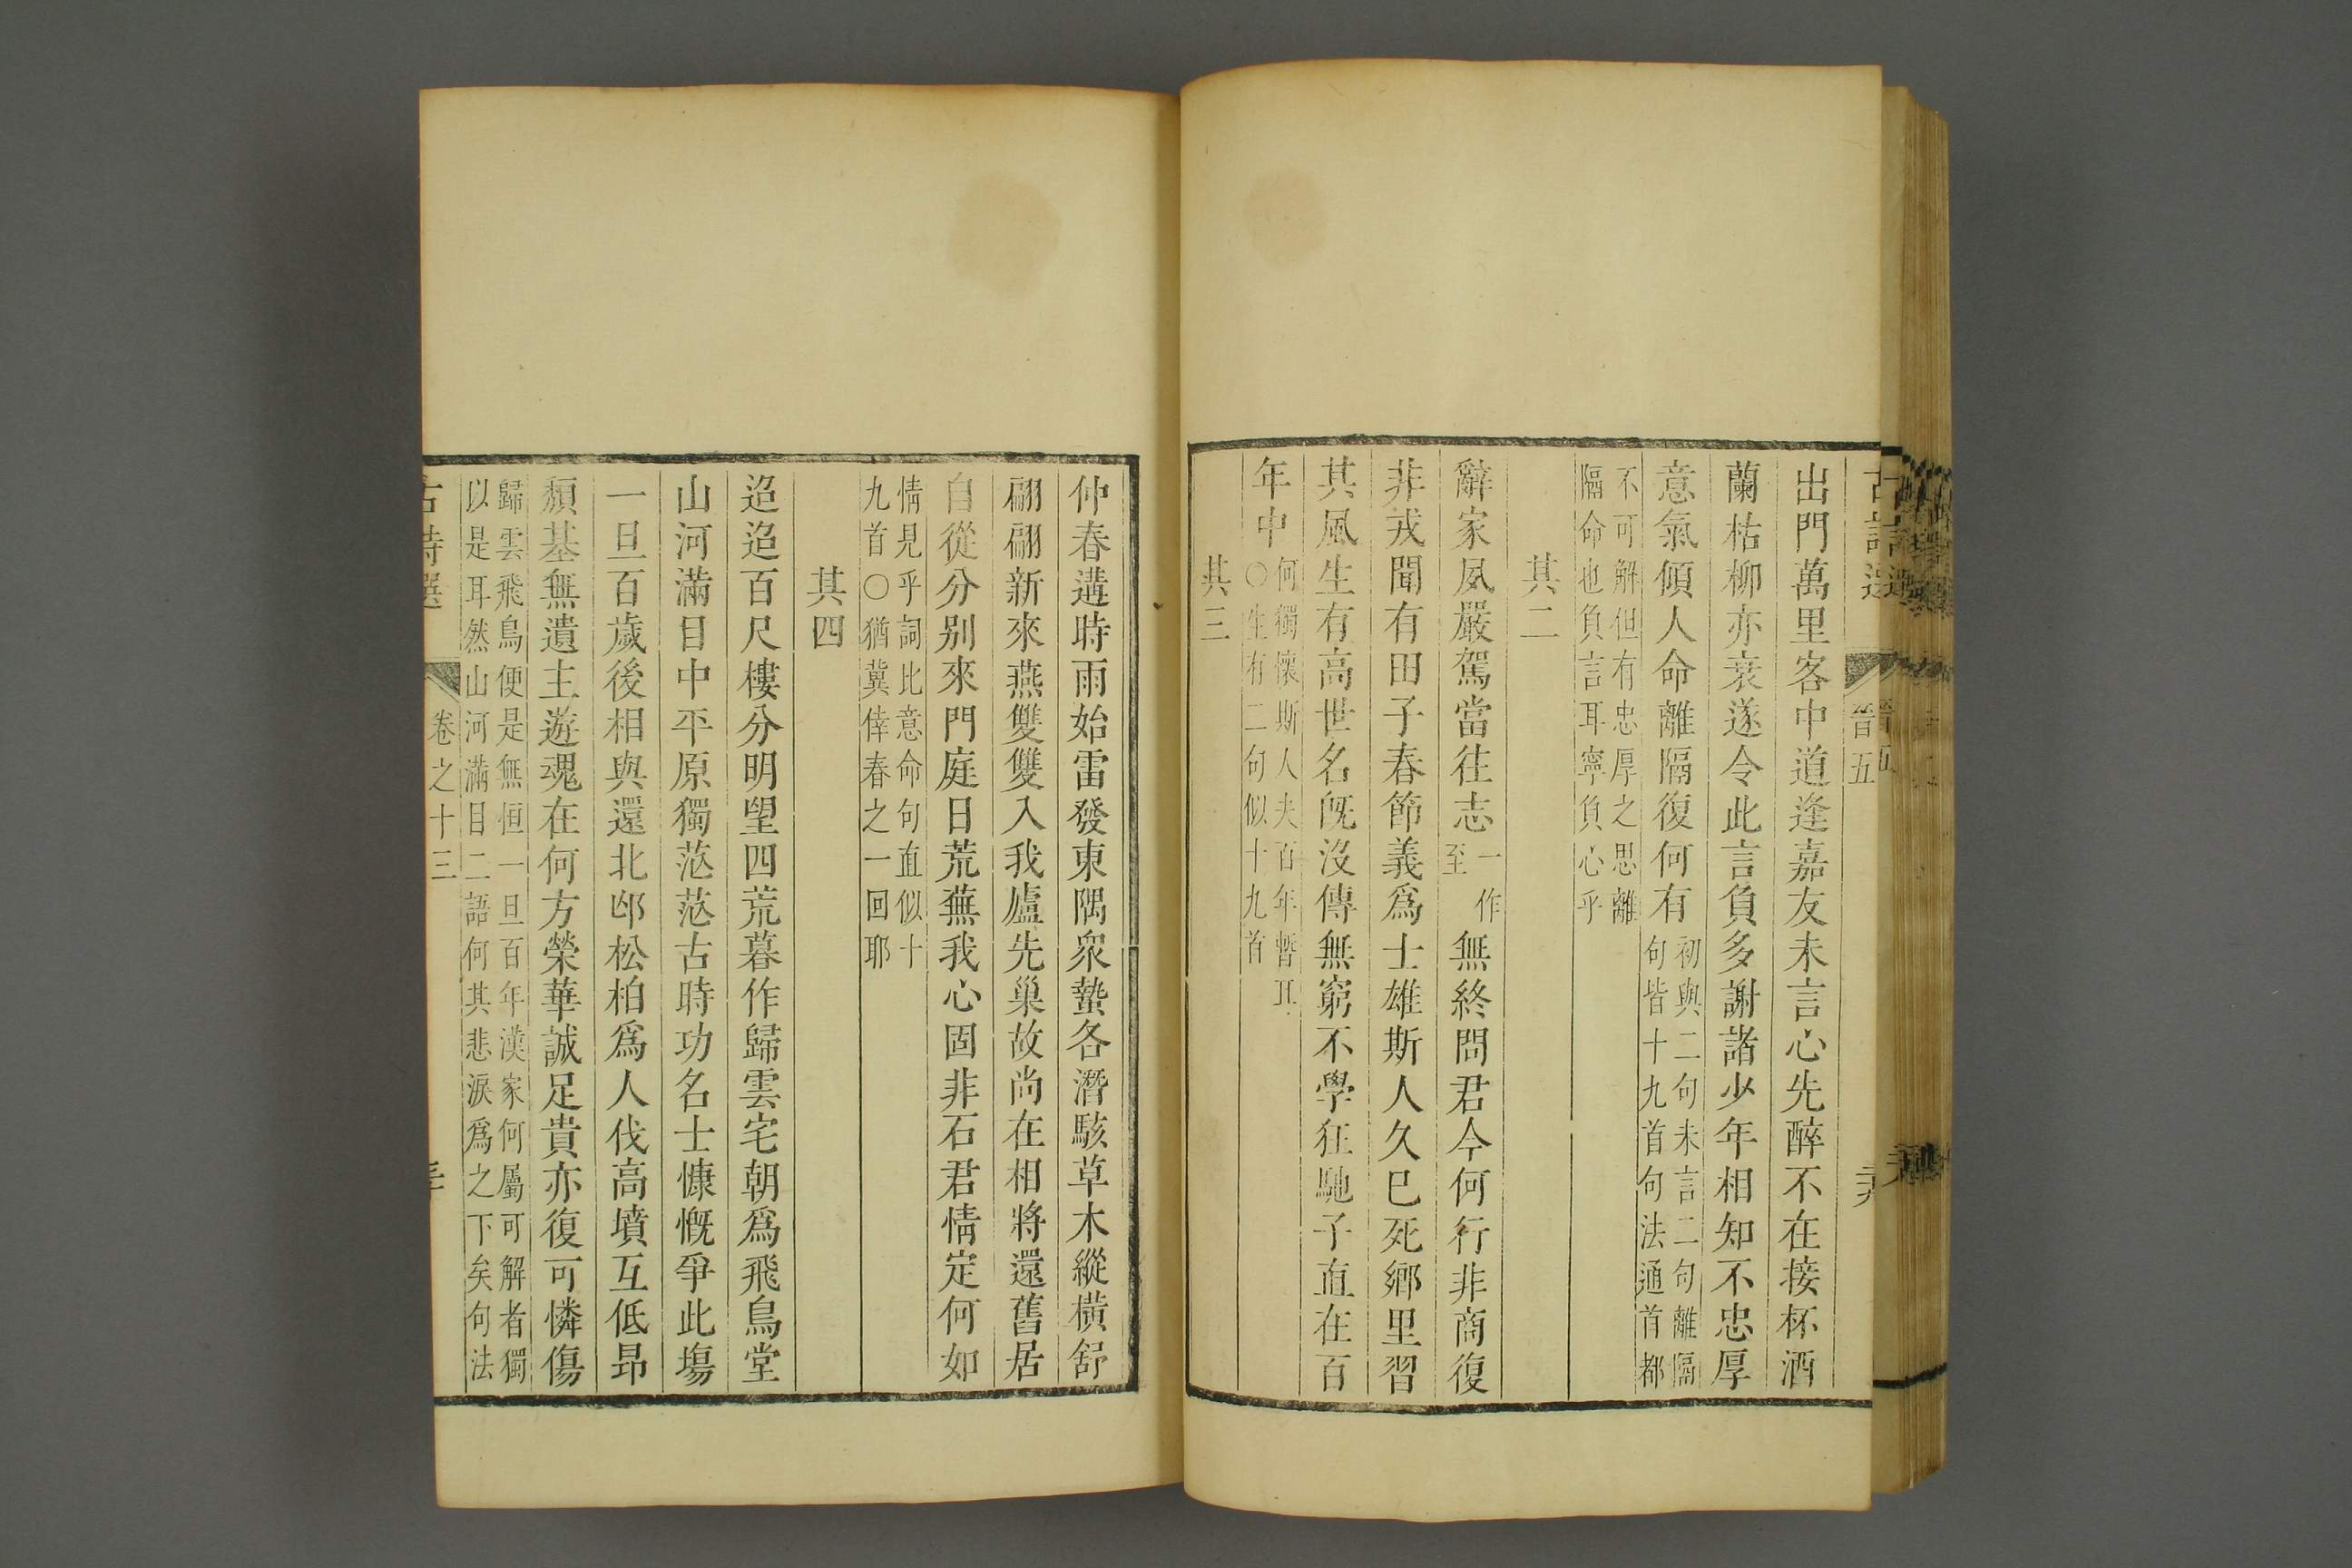 古詩選
晉五
出門萬里客中道逢嘉友未言心先醉不在接杯酒
蘭枯柳亦衰遂令此言負多謝諸少年相知不忠厚
意氣傾人命離隔復何有
初與二句未言二句離隔
句皆十九首句法通首都
不可解但有忠厚之思離
隔命也負言耳寧負心乎
其二
辭家夙嚴駕當往志
一作
至
無終問君今何行非商復
非戎聞有田子春節義爲士雄斯人久已死鄉里習
其風生有高世名旣沒傳無窮不學狂馳子直在百
年中
何獨懷斯人夫百年暫耳
○生有二句似十九首
其三
仲春遘時雨始雷發東隅衆蟄各潛駭草木縱橫舒
翩翩新來燕雙雙入我廬先巢故尚在相將還舊居
自從分別來門庭日荒蕪我心固非石君情定何如
情見乎詞比意命句直似十
九首○猶冀倖春之一回耶
其四
迢迢百尺樓分明望四荒暮作歸雲宅朝爲飛鳥堂
山河滿目中平原獨茫茫古時功名士慷慨爭此塲
一旦百歲後相與還北邙松柏爲人伐高墳互低昂
頹基無遺主遊魂在何方榮華誠足貴亦復可憐傷
歸雲飛鳥便是無恒一旦百年漢家何屬可解者獨
以是耳然山河滿目二語何其悲淚爲之下矣句法
古詩選
卷之十三